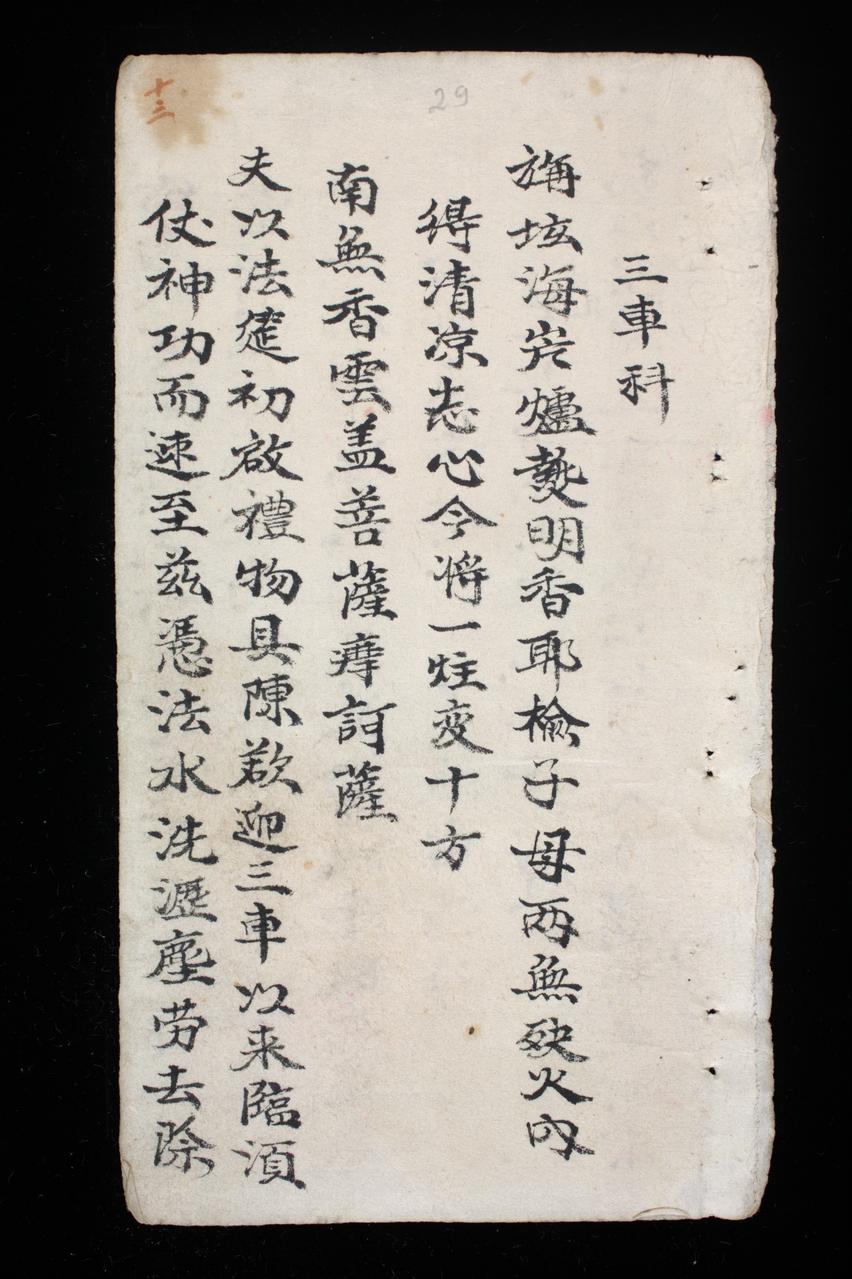 三車科
旃坛海岸爐爇明香耶榆子母兩無殃火内
得清凉志心今将一炷变十方
南無香雲盖菩薩摩訶薩
夫以法筵初啟禮物具陳欲迎三車以来臨湏
仗神功而速至兹憑法水洗瀝塵劳去除
29
十三